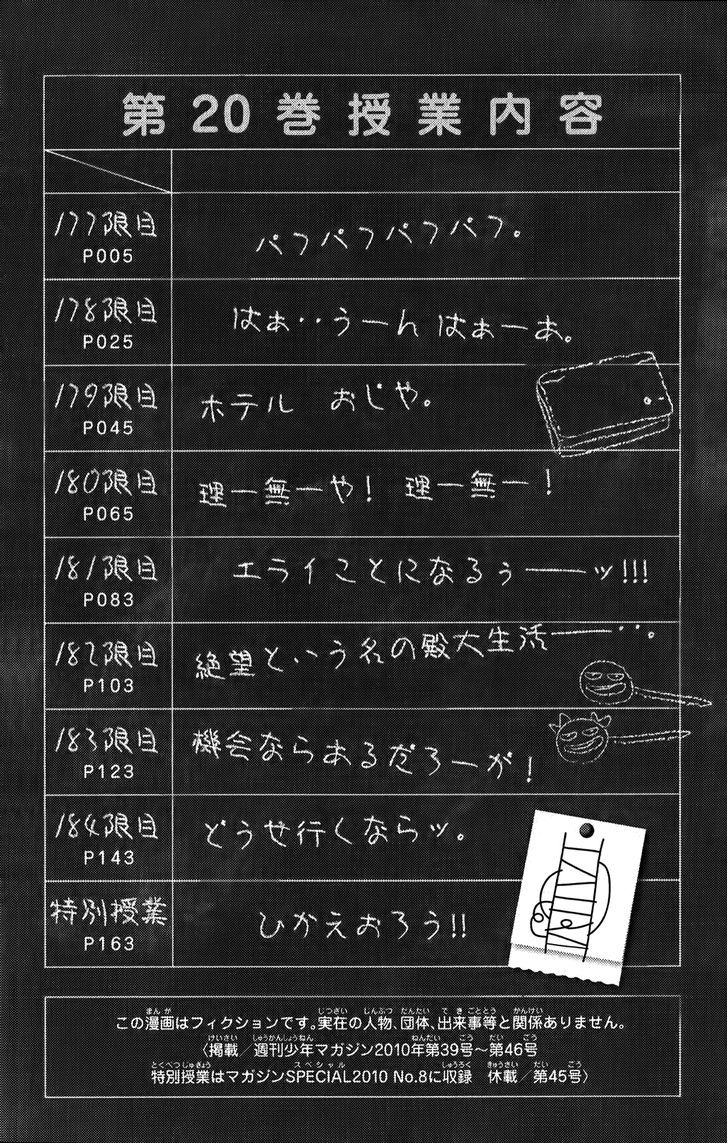 第20巻授業内容
177限目
P005
パフパフパフパフ。
178限目
P025
はぁ‥うーん はぁーあ。
179限目
P045
ホテル おじや。
180限目
P065
理一無一や! 理一無一!
181限目
P083
エライことになるぅ──ッ!!!
182限目
P103
絶望という名の殿大生活──‥。
183限目
P123
機会ならあるだろーが!
184限目
P143
どうせ行くならッ。
特別授業
P163
ひかえおろう!!
この漫画はフィクションです。実在の人物、団体、出来事等と関係ありません。
〈掲載/週刊少年マガジン2010年第39号〜第46号
特別授業はマガジンSPECIAL2010 No.8に収録 休載/第45号〉